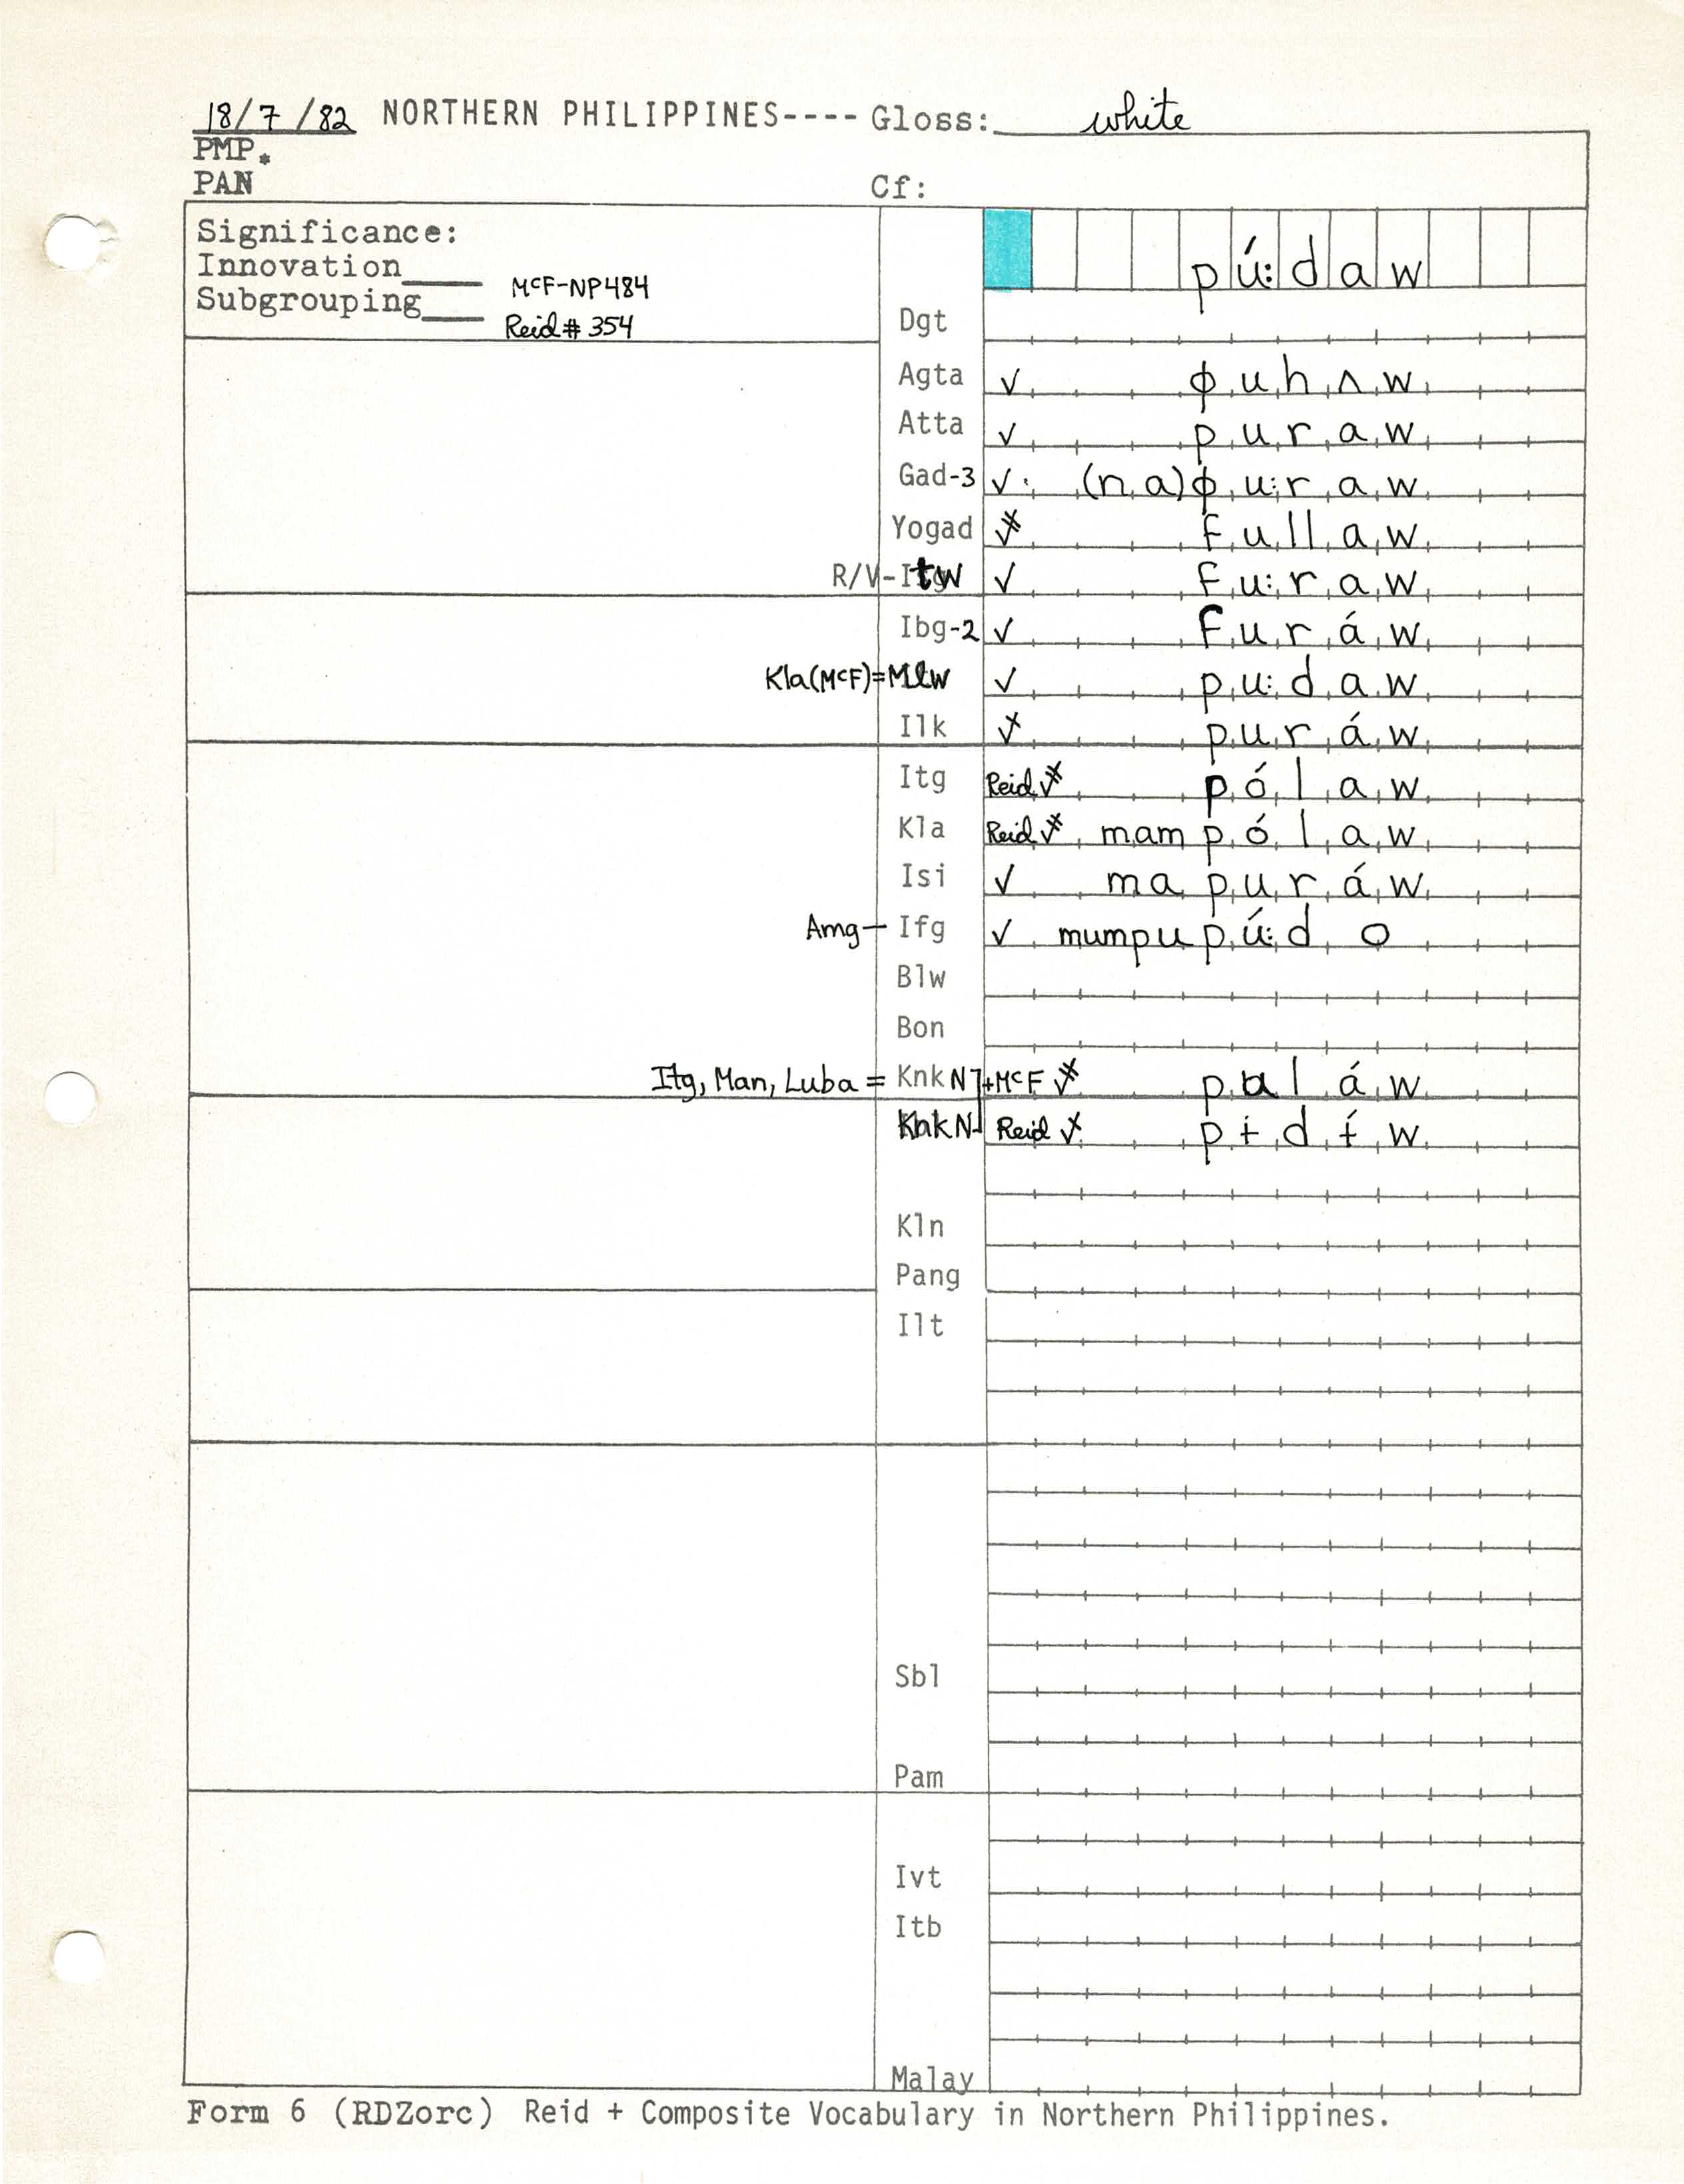 18/7/82 NORTHERN PHILIPPINES---- Gloss: white
PMP*
PAN Cf:
Significance:
Innovation____ McF-NP484
Subgrouping____ Reid# 354
pú:daw
Dgt
Agta ✓ ɸuhʌw
Atta ✓ puraw
Gad-3 ✓ (na)ɸu:raw
Yogad ✓ fullaw
R/V-Itw ✓ fu:raw
Ibg-2 ✓ furáw
Kla(McF)=Mlw ✓ pu:daw
Ilk ✓ puráw
Itg Reid ✓ pólaw
Kla Reid ✓ mampólaw
Isi ✓ mapuráw
Amg — Ifg ✓ mumpupú:do
Blw
Bon
Itg, Man, Luba = KnkN +McF ✓ paláw
KnkN Reid ✓ pɨdɨ́w
Kln
Pang
Ilt
Sbl
Pam
Ivt
Itb
Malay
Form 6 (RDZorc) Reid + Composite Vocabulary in Northern Philippines.